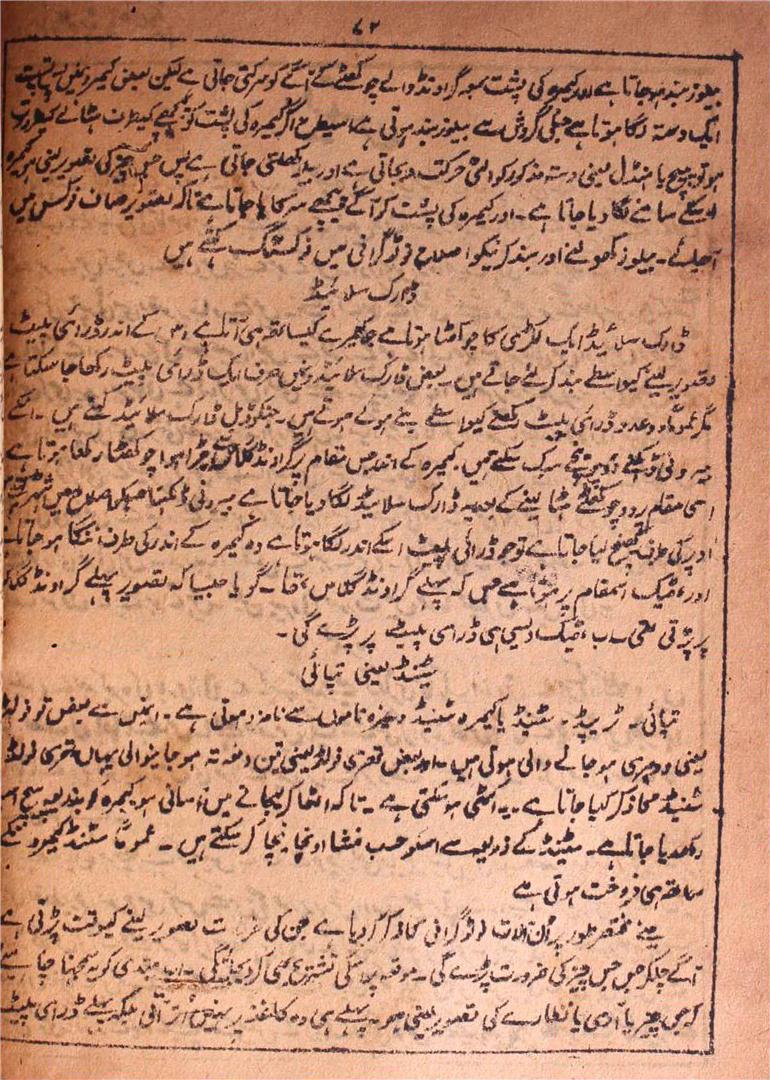 ۶۲
بیلوز بند ہو جاتا ہے اور کیمرہ کی پشت معہ گراونڈ والے چوکھٹے کے آگے کو سرکتی جاتی ہے لیکن بعض کیمروں میں
ایک دستہ لگا ہوتا ہے جسکی گردش سے بیلوز بند ہوتی ہے اسیطرح اگر کیمرہ کی پشت کو پیچھے کیطرف ہٹانے کی ضرورت
ہو تو پیچ یا ہنڈل یعنی دستہ مذکور کو الٹی حرکت دیجاتی ہے اور بیلوز کھلتی جاتی ہے پس جس چیز کی تصویر لینی ہو کیمرہ
اسکے سامنے لگا دیا جاتا ہے۔ اور کیمرہ کی پشت کو آگے پیچھے سرکایا جاتا ہے تاکہ تصویر صاف فوکس میں
آجائے۔ بیلوز کھولنے اور بند کرنیکو اصلاح فوٹوگرافی میں فوکسنگ کہتے ہیں
ڈارک سلائیڈ
ڈارک سلائیڈ ایک لکڑی کا چوکھٹا ہوتا ہے جو کیمرے کیساتھ ہی آتا ہے اس کے اندر ڈرائی پلیٹ
تصویر لینے کیواسطے بند کر لئے جاتے ہیں۔ بعض ڈارک سلائیڈوں میں صرف ایک ڈرائی پلیٹ رکھا جا سکتا ہے
مگر عموماً دو عدد ڈرائی پلیٹ رکھنے کیواسطے بنے ہوئے ہوتے ہیں۔ جنکو ڈبل ڈارک سلائیڈ کہتے ہیں۔ اسکے
بیرونی ڈھکنے اوپر نیچے سرک سکتے ہیں۔ کیمرہ کے اندر جس مقام پر گراونڈ گلاس جڑا ہوا چوکھٹا رکھا ہوتا ہے
اسی مقام پر وہ چوکھٹے ہٹا لینے کے بعد یہ ڈارک سلائیڈ لگا دیا جاتا ہے بیرونی ڈھکنا جسکو اصلاح میں شٹر
اوپر کی طرف کھینچ لیا جاتا ہے تو جو ڈرائی پلیٹ اسکے اندر لگا ہوتا ہے وہ کیمرہ کے اندر کی طرف ننگا ہو جاتا ہے
اور ٹھیک اسمقام پر ہوتا ہے جس کہ پہلے گراونڈ گلاس تھا۔ گویا جیسا کہ تصویر پہلے گراونڈ گلاس
پر پڑتی تھی اب ٹھیک ویسی ہی ڈرائی پلیٹ پر پڑے گی۔
سٹینڈ یعنی تپائی
تپائی۔ ٹریپڈ۔ سٹینڈ یا کیمرہ سٹینڈ وغیرہ ناموں سے نامزد ہوتی ہے۔ انمیں سے بعض ٹو فولڈ
یعنی دوہری ہو جانے والی ہوتی ہیں۔ اور بعض تھری فولڈ یعنی تین دفعہ تہ ہو جانیوالی یہاں تھری فولڈ
سٹینڈ کا ذکر کیا جاتا ہے۔ یہ اکٹھی ہو سکتی ہے۔ تاکہ اٹھا کر لیجانے میں آسانی ہو کیمرہ کو بذریعہ پیچ اسپر
رکھدیا جاتا ہے۔ سٹینڈ کے ذریعہ سے اسکو حسب منشا اونچا نیچا کر سکتے ہیں۔ عموماً سٹینڈ کیمروں کے
ساتھ ہی فروخت ہوتی ہے
مینے مختصر طور پر ان آلات فوٹوگرافی کا ذکر کر دیا ہے جن کی ضرورت تصویر لینے کیوقت پڑتی ہے
آگے چلکر جس جس چیز کی ضرورت پڑے گی۔ موقعہ پر اسکی تشریح بھی کر دیجائیگی۔ اب مبتدی کو یہ سمجھنا چاہیئے
کہ جس چیز یا آدمی یا نظارے کی تصویر لینی ہو۔ پہلے ہی وہ کاغذ پر نہیں اتر آتی بلکہ پہلے ڈرائی پلیٹ